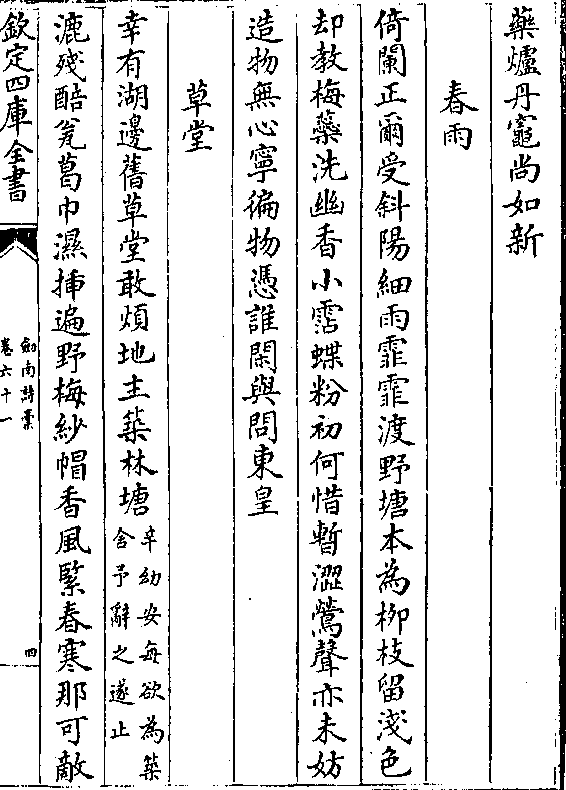 藥爐丹竈尚如新
春雨
倚闌正爾受斜陽細雨霏霏渡野塘本為柳枝留淺色
却教梅蘂洗幽香小霑蝶粉初何惜暫澀鶯聲亦未妨
造物無心寧徧物憑誰閑與問東皇
草堂
幸有湖邊舊草堂敢煩地主築林塘
辛幼安每欲為築
舍予辭之遂止
漉殘醅瓮葛巾濕揷遍野梅紗帽香風緊春寒那可敵
欽定四庫全書
劍南詩稾
卷六十一
四